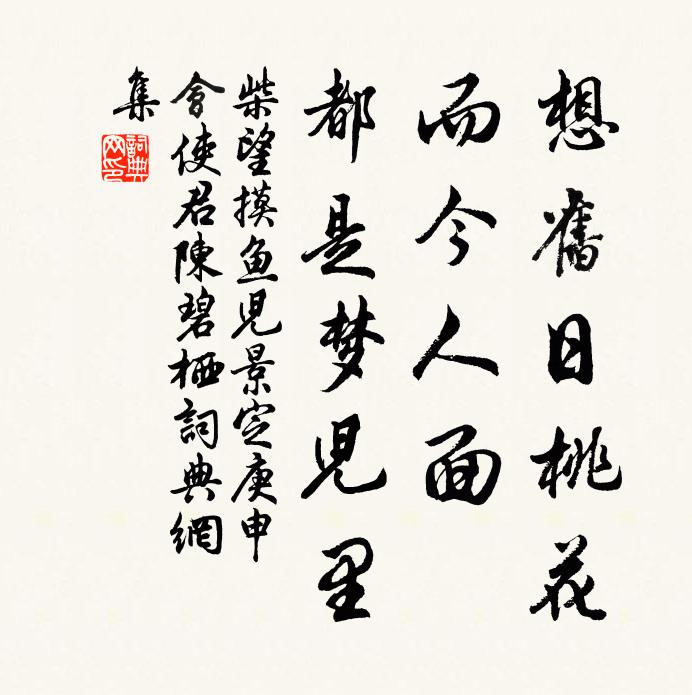 想舊日桃花
而今人面
都是梦児里
柴望摸鱼児景定庚申
會使君陳碧栖詞典網
集
詞典网印